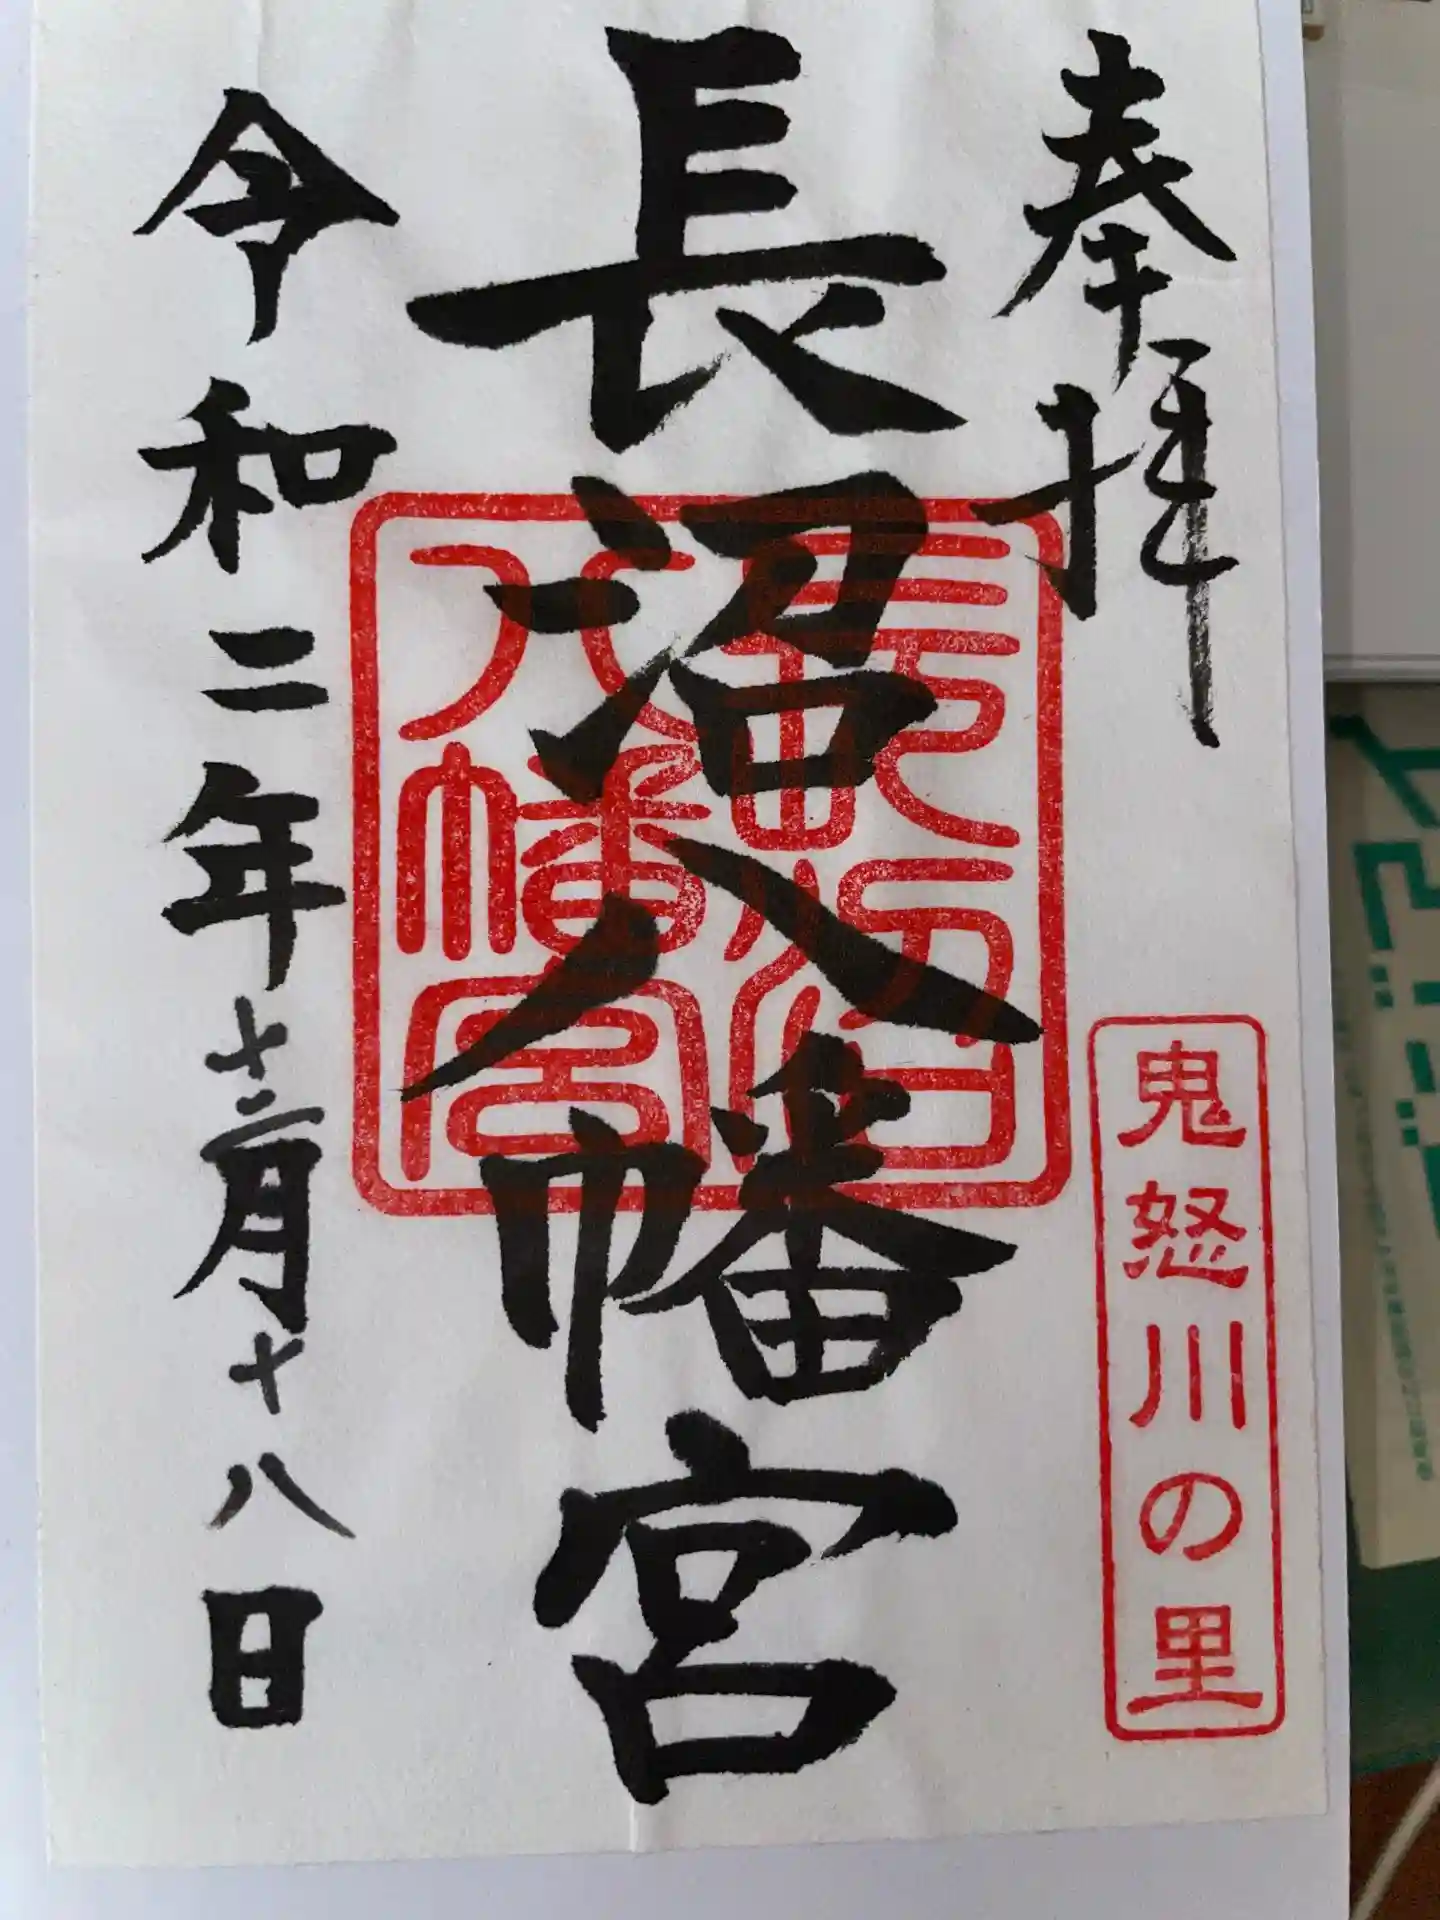 奉拝
鬼怒川の里
長沼八幡宮
長沼八幡宮
令和二年十二月十八日